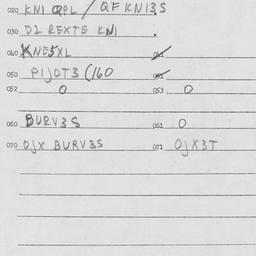 020 KN1 QRPL / QF KN13S
030 D2 REXTE KN1
040 KNE5XL 041
050 PIJOT3 (160 051
052 0 053 0
060 BURV3S 061 0
070 OJX BURV3S 071 OJX3T